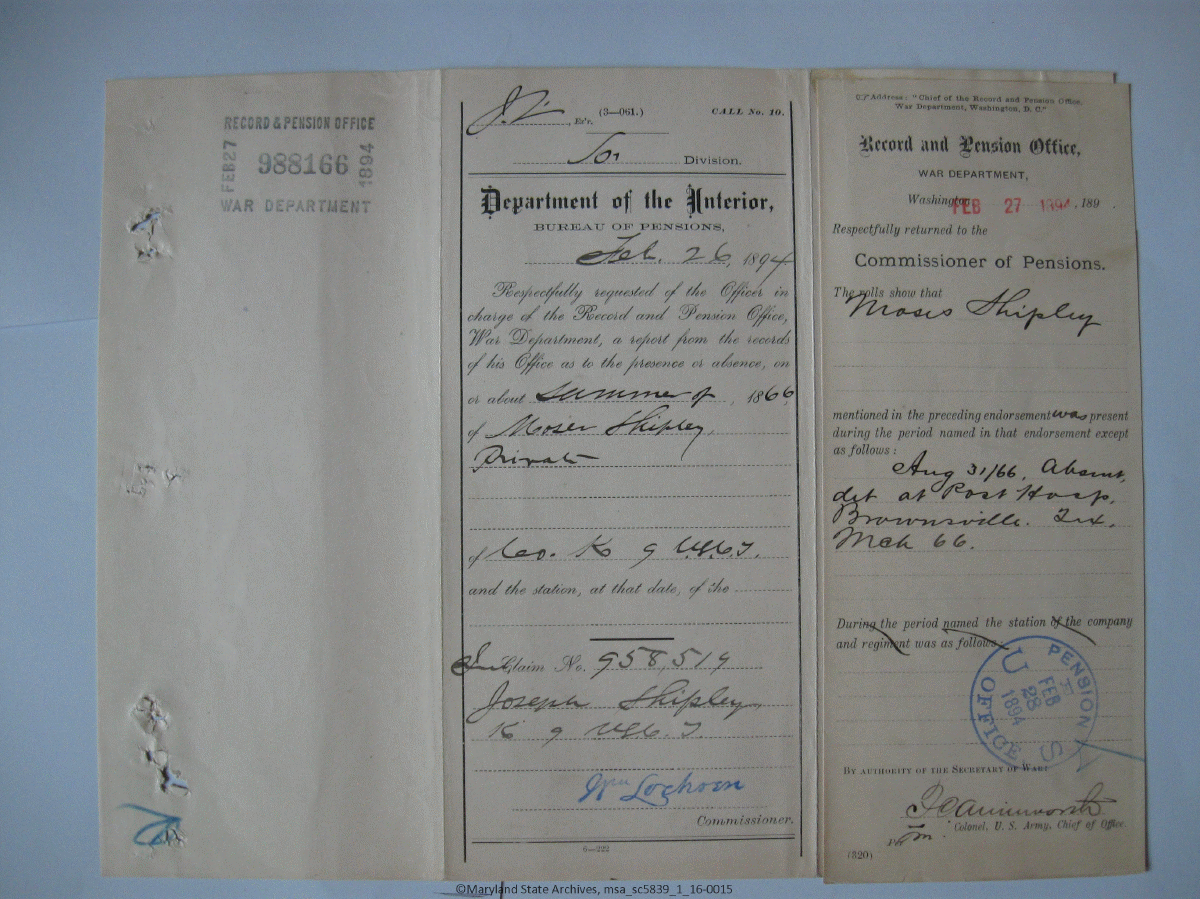 RECORD & PENSION OFFICE
FEB 27 988166 1894
WAR DEPARTMENT
, Ex'r. (3—061.) CALL No. 10.
So. Division.
Department of the Interior,
BUREAU OF PENSIONS,
Feb. 26, 1894
Respectfully requested of the Officer in
charge of the Record and Pension Office,
War Department, a report from the records
of his Office as to the presence or absence, on
or about summer of, 1866
of Moses Shipley,
Private
of Co. K 9 U.S.C.T.
and the station, at that date, of the
Claim No. 958,519
Joseph Shipley,
K 9 U.S.C.T.
Wm Lochren
Commissioner.
6—222
Address: "Chief of the Record and Pension Office,
War Department, Washington, D. C."
Record and Pension Office,
WAR DEPARTMENT,
Washington FEB 27 1894, 189
Respectfully returned to the
Commissioner of Pensions.
The rolls show that
Moses Shipley
mentioned in the preceding endorsement was present
during the period named in that endorsement except
as follows:
Aug 31/66, Absent,
det at Post Hosp.
Brownsville. Tex.
Mch 66.
During the period named the station of the company
and regiment was as follows:
U S PENSION OFFICE
FEB
28
1894
BY AUTHORITY OF THE SECRETARY OF WAR:
F C Ainsworth
Colonel, U. S. Army, Chief of Office.
Per
(320)
©Maryland State Archives, msa_sc5839_1_16-0015